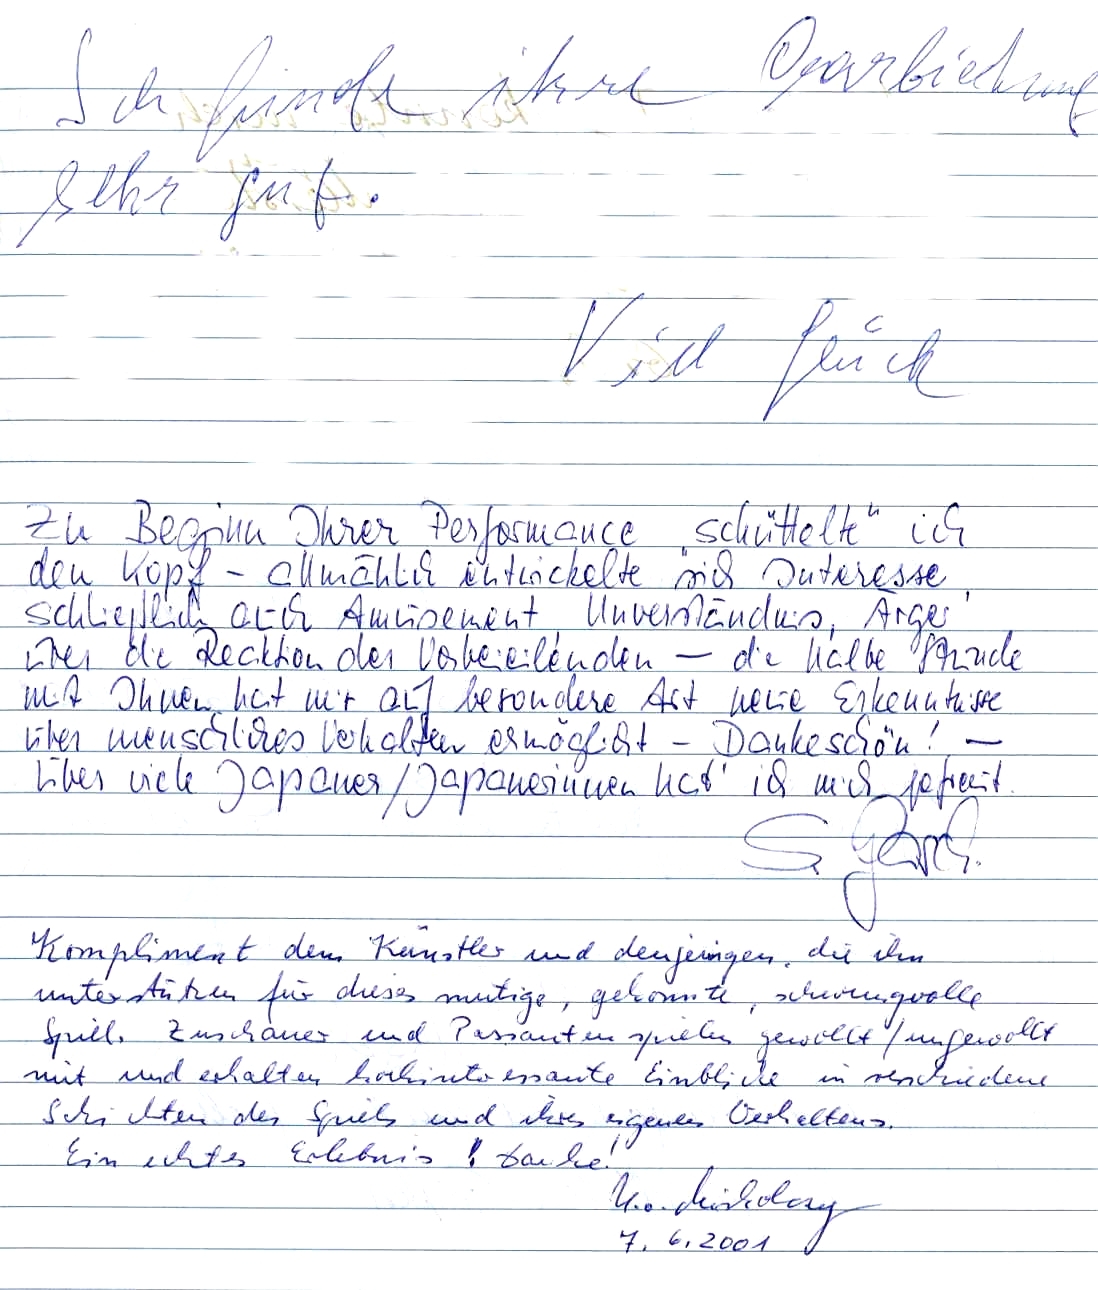 Ich finde ihre Darbiehung
sehr gut.
Viel Glück
Zu Beginn Ihrer Performance "schüttelte" ich
den Kopf - allmählich entwickelte sich Interesse,
schließlich auch Amüsement Unverständnis, Ärger
über die Reaktion der Vorbeieilenden — die halbe Stunde
mit Ihnen hat mir auf besondere Art neue Erkenntnisse
über menschliches Verhalten ermöglicht - Dankeschön! —
über viele Japaner/Japanerinnen hab' ich mich gefreut.
S.
Kompliment dem Künstler und denjenigen, die ihn
unterstützen für dieses mutige, gekonnte, schwungvolle
Spiel. Zuschauer und Passanten spielen gewollt/ungewollt
mit und erhalten hochinteressante Einblicke in verschiedene
Schichten des Spiels und ihres eigenen Verhaltens.
Ein echtes Erlebnis! Danke!
7. 6. 2001